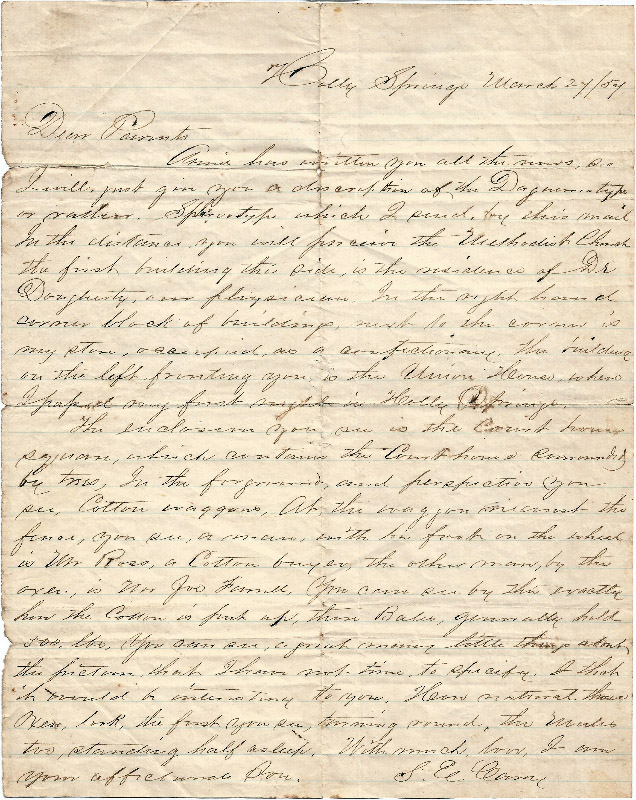 Holly Springs March 27/59
Dear Parents
Annie has written you all the news, so
I will just give you a discription of the Daguereotype
or rather. Spherotype which I send, by this mail
In the distance you will perceive the Methodist Church
the first building this side, is the residence of Dr
Dougherty, our Physician. In the right hand
corner block of buildings, next to the corner is
my store, occupied, as a confectionary, the building
on the left fronting you, is the Union House, where
I passed my first night in Holly Springs.
The enclosure you see is the Court house
square, which contains the Court house surrounded
by trees, In the foreground, and perspective you
see, Cotton waggons, At the waggon nearest the
fence, you see, a man, with his foot on the wheel
is Mr Ross, a Cotton buyer, the other man, by the
oxen, is Mr Joe Farrell. You can see by this exactly
how the Cotton is put up, these Bales, generally hold
500. lbs, You can see, a great many little things about
the picture, that I have not time, to specify. I that
it would be interesting to you, How natural those
Oxen, look, the first you see, turning round, the Mules
too, standing half asleep. With much, love, I am
your affectionate Son. S. E.